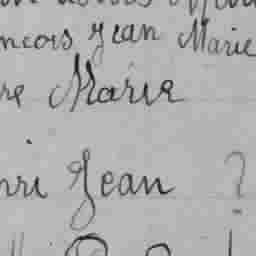 ncois Jean Marie
re Marie
nri Jean ?